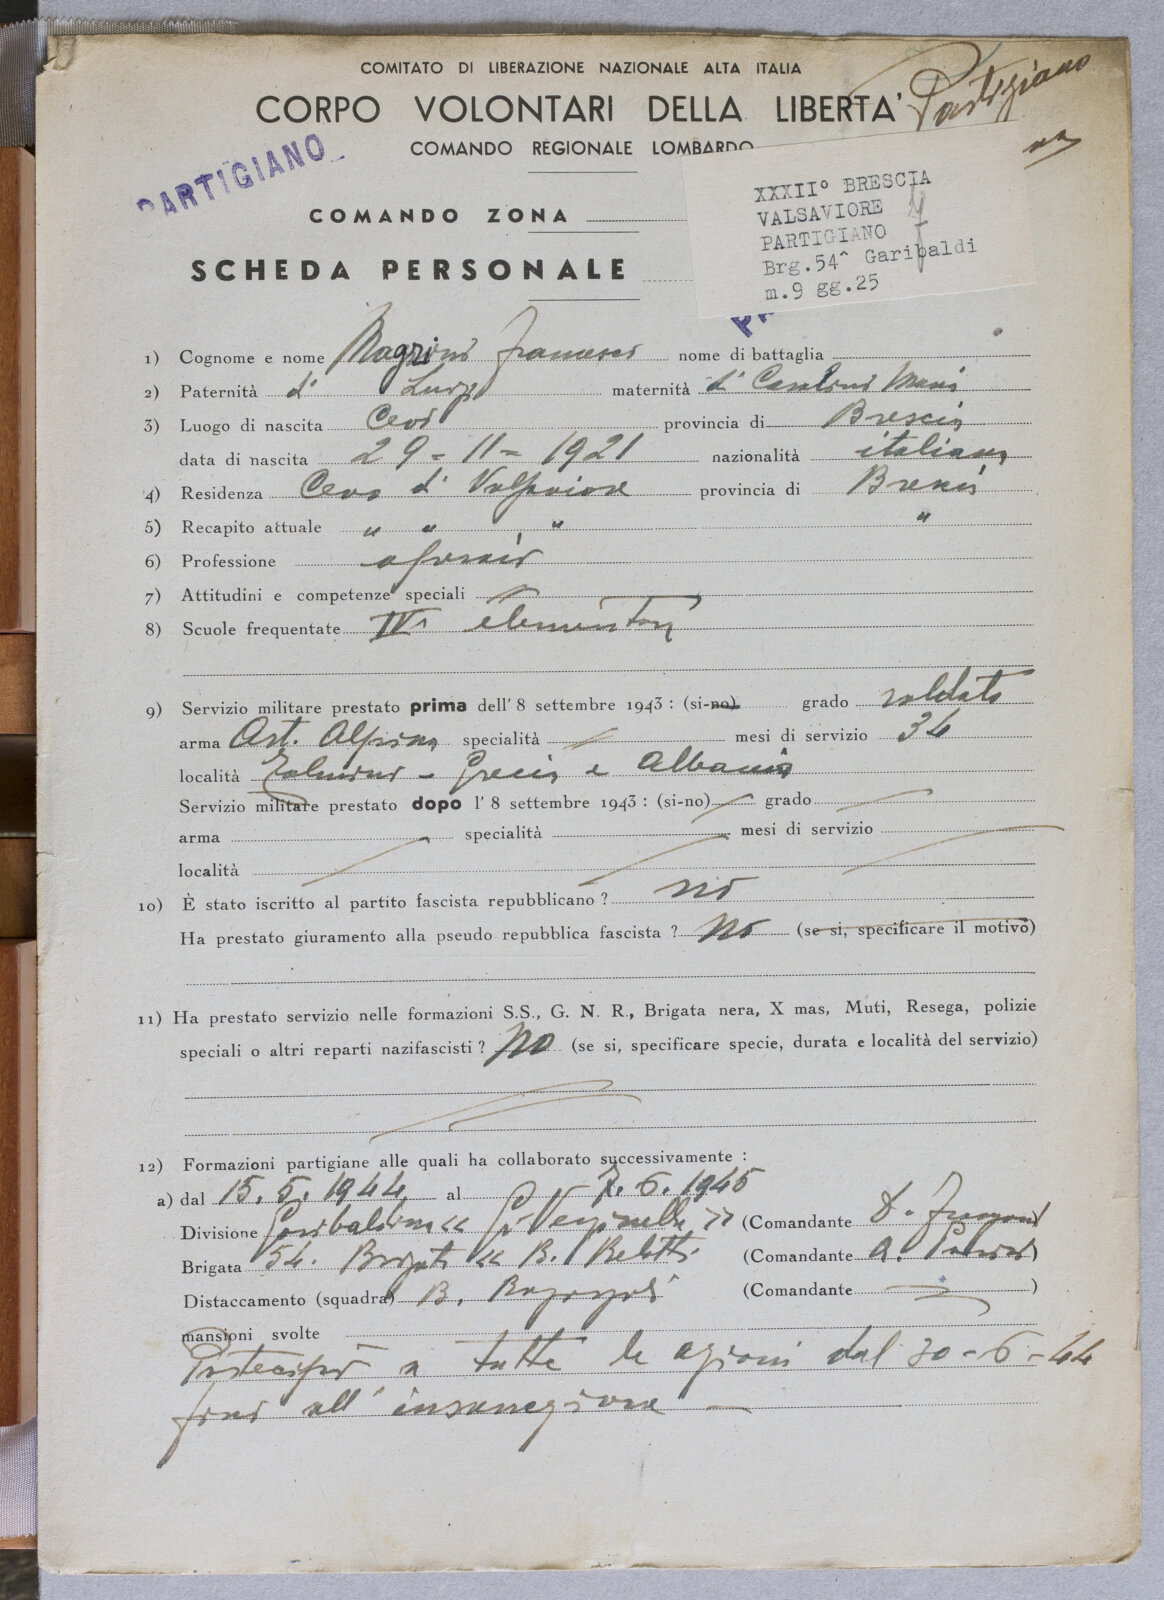 COMITATO DI LIBERAZIONE NAZIONALE ALTA ITALIA
CORPO VOLONTARI DELLA LIBERTA'
Partigiano
COMANDO REGIONALE LOMBARDO
PARTIGIANO
COMANDO ZONA
SCHEDA PERSONALE
XXXII° BRESCIA
VALSAVIORE
PARTIGIANO
Brg.54^ Garibaldi
m.9 gg.25
1) Cognome e nome Francesco nome di battaglia
2) Paternità di Luigi maternità di Maria
3) Luogo di nascita Cevo provincia di Brescia
data di nascita 29 - 11 - 1921 nazionalità italiana
4) Residenza Cevo di Valsaviore provincia di Brescia
5) Recapito attuale " " " "
6) Professione operaio
7) Attitudini e competenze speciali
8) Scuole frequentate IVa elementare
9) Servizio militare prestato prima dell' 8 settembre 1943 : (si-no) grado soldato
arma Art. Alpina specialità mesi di servizio 34
località - Grecia e Albania
Servizio militare prestato dopo l' 8 settembre 1943 : (si-no) grado
arma specialità mesi di servizio
località
10) È stato iscritto al partito fascista repubblicano ? no
Ha prestato giuramento alla pseudo repubblica fascista ? No (se si, specificare il motivo)
11) Ha prestato servizio nelle formazioni S.S., G. N. R., Brigata nera, X mas, Muti, Resega, polizie
speciali o altri reparti nazifascisti ? No (se si, specificare specie, durata e località del servizio)
12) Formazioni partigiane alle quali ha collaborato successivamente :
a) dal 15. 5. 1944 al 7. 6. 1945
Divisione Garibaldina « » (Comandante
Brigata 54. Brigata « B. Belotti (Comandante A. )
Distaccamento (squadra) B. (Comandante )
mansioni svolte
Partecipò a tutte le azioni dal 30-6-44
fino all' insurrezione -